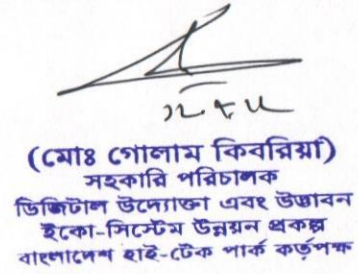 (মোঃ গোলাম কিবরিয়া)
সহকারি পরিচালক
ডিজিটাল উদ্যোক্তা এবং উদ্ভাবন
ইকো-সিস্টেম উন্নয়ন প্রকল্প
বাংলাদেশ হাই-টেক পার্ক কর্তৃপক্ষ